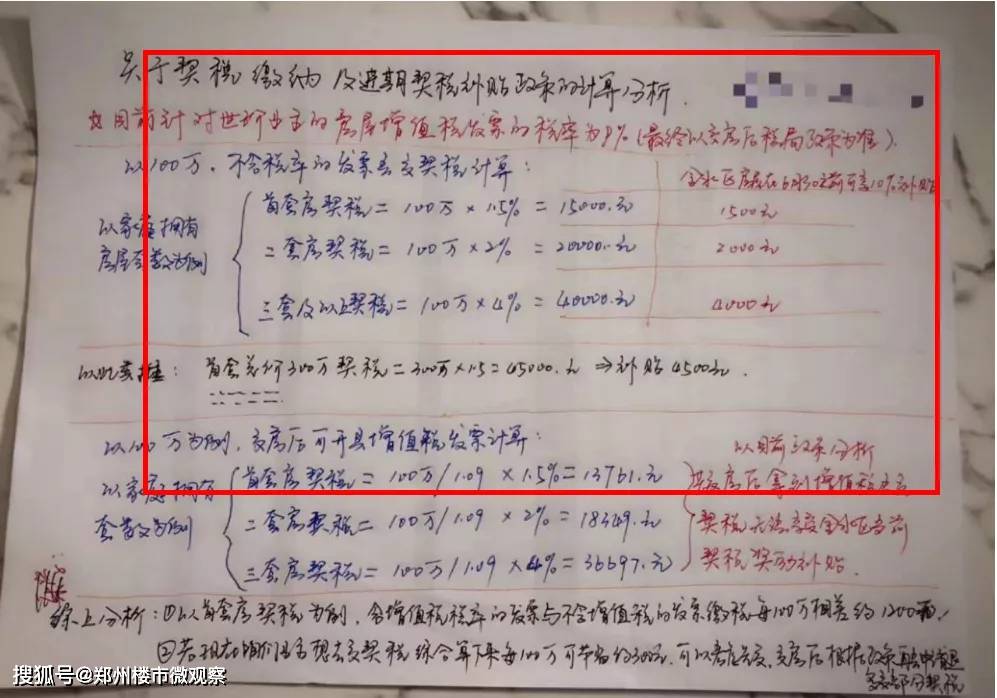 关于契税缴纳及近期契税补贴政策的计算分析.
目前针对世 业主的房屋增值税发票的税率为9%(最终以交房后税局政策为准).
以100万,不含税率的发票去交契税计算:
金水区房 在6月30之前可享10%补贴
以家庭拥有
房屋套数为例
首套房契税 = 100万 × 1.5% = 15000.元
1500元
二套房契税 = 100万 × 2% = 20000.元
2000元
三套及以上契税 = 100万 × 4% = 40000.元
4000元
以此类推: 首套总价300万契税 = 300万×1.5 = 45000.元 ⇒ 补贴4500元.
以100万为例,交房后可开具增值税发票计算:
以目前政策分析
以家庭拥有
套数为例
首套房契税 = 100万/1.09 × 1.5% = 13761.元
二套房契税 = 100万/1.09 × 2% = 18349.元
三套房契税 = 100万/1.09 × 4% = 36697.元
交房后拿到增值税去交
契税无法享受金水区当前
契税奖励补贴.
综上分析: ①以首套房契税为例,含增值税税率的发票与不含增值税的发票缴税每100万相差约1200
②若现在 想去交契税综合算下来每100万可节省约300元,可以考虑去交,交房后根据政策再去申请退
多交部分契税
搜狐号@郑州楼市微观察